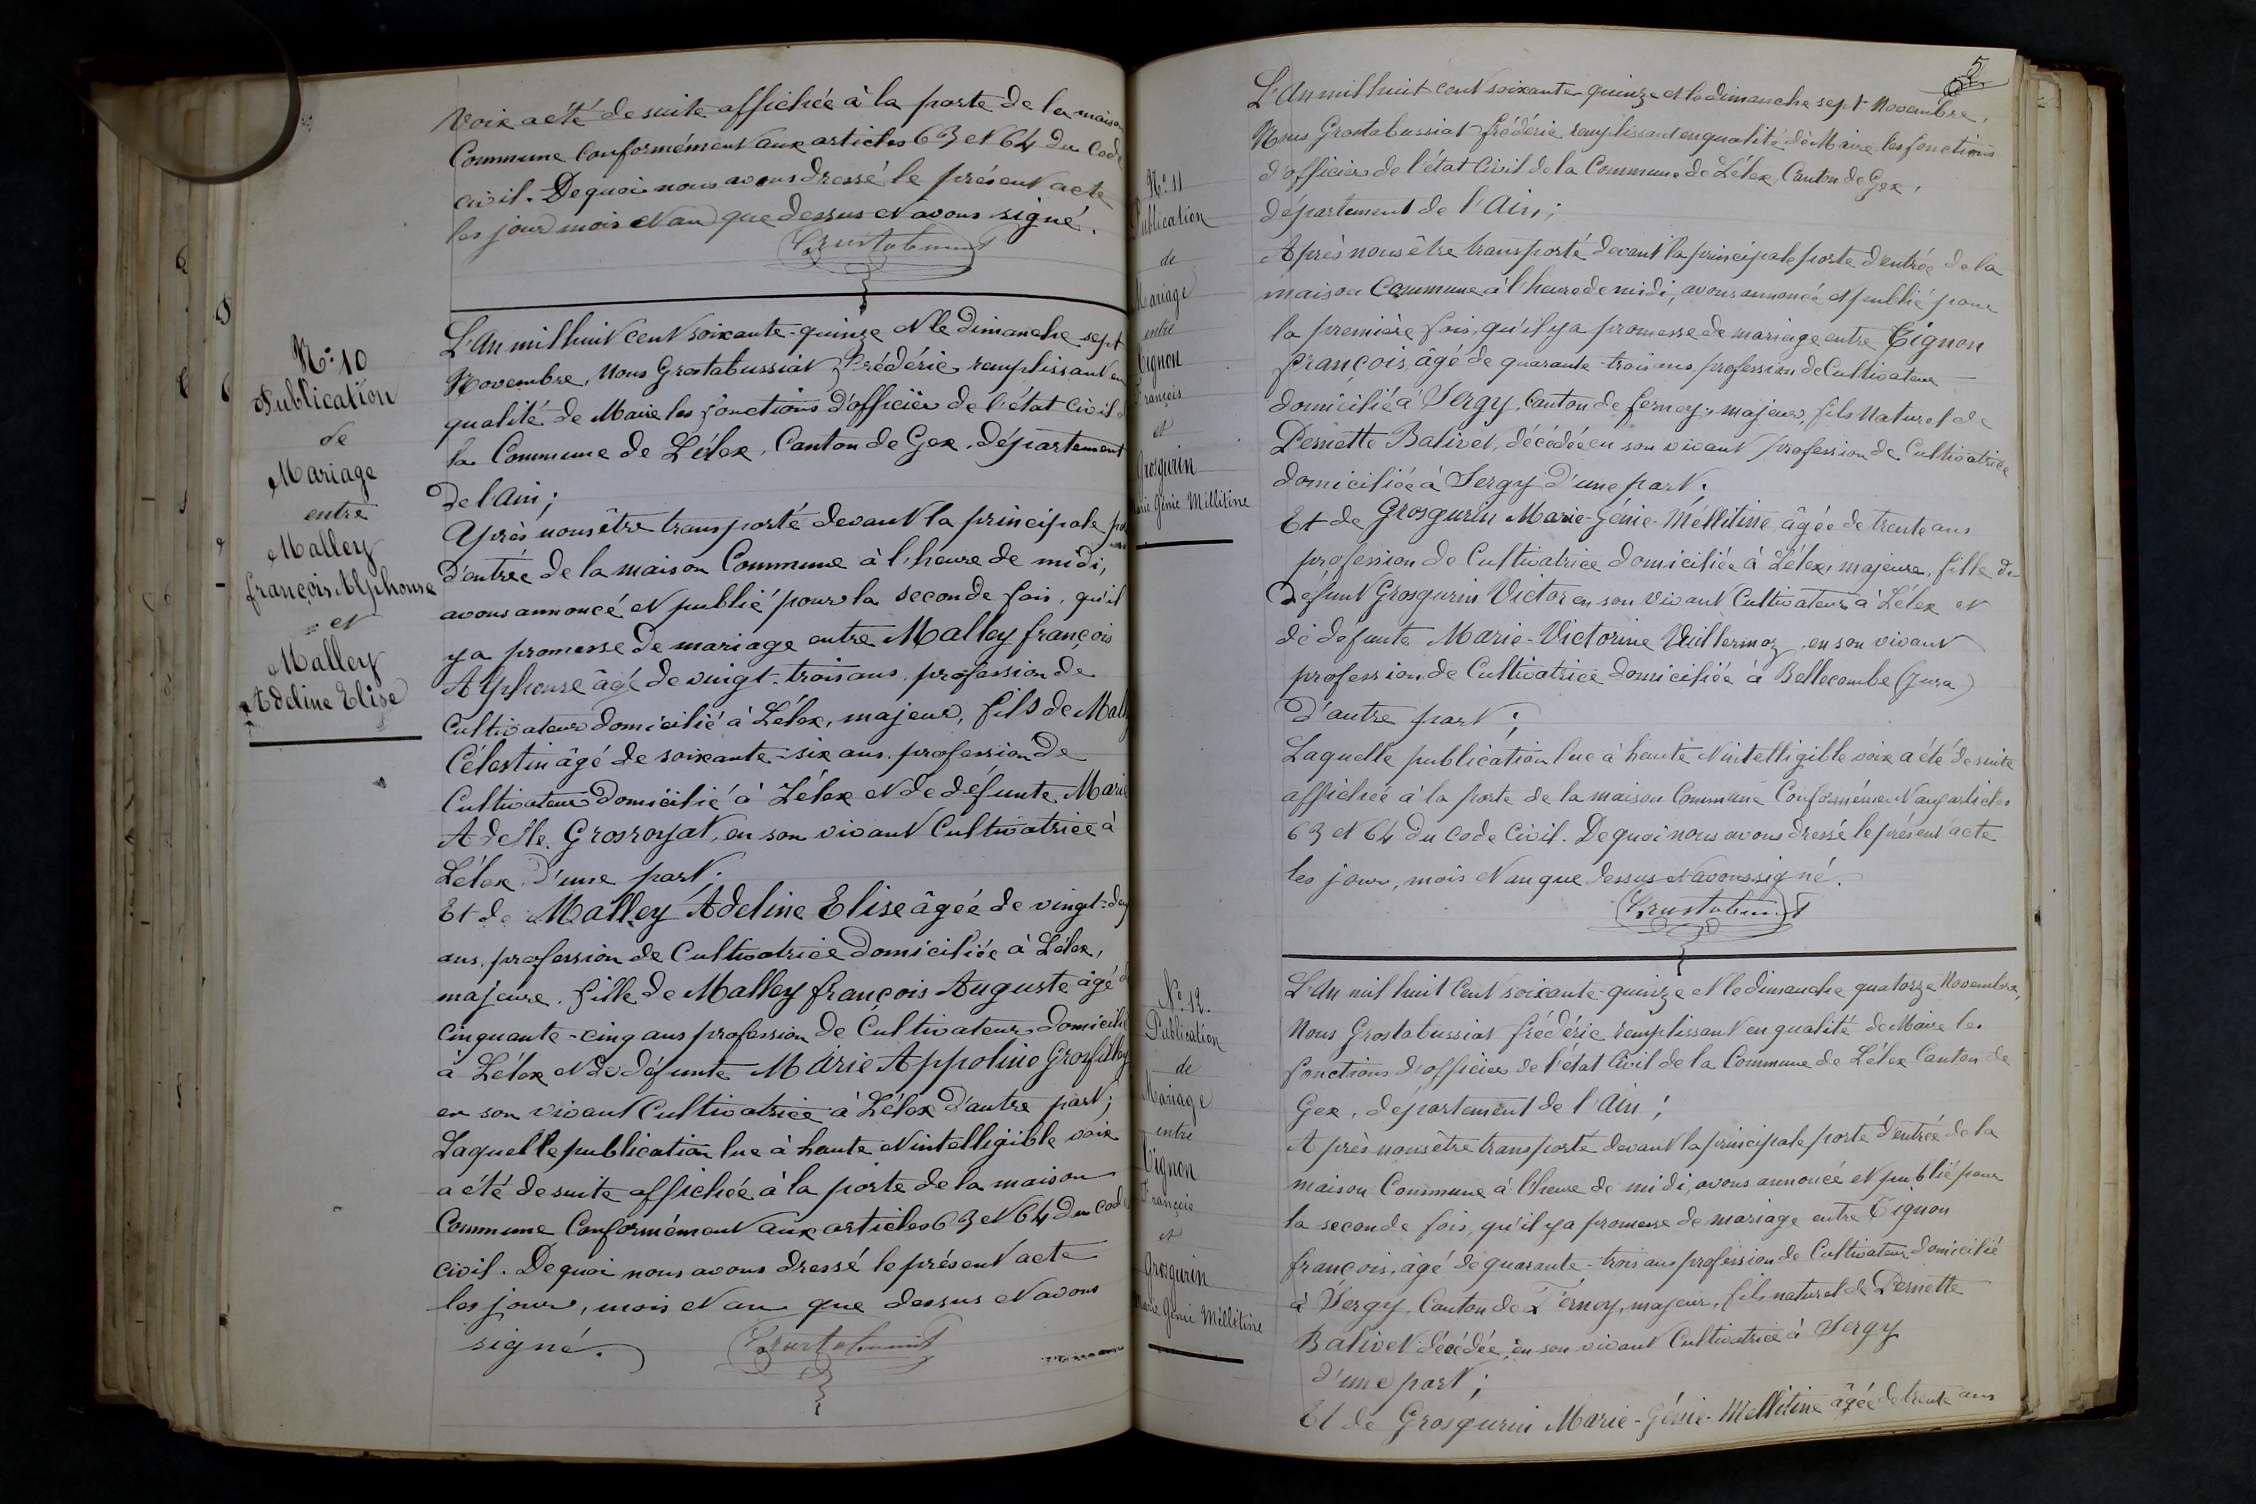 voix a été de suite affichée à la porte de la maison
Commune Conformément aux articles 63 et 64 du Code
civil. De quoi nous avons dressé le présent acte
les jour mois et an que dessus et avons signé.
N° 10
Publication
de
Mariage
entre
Malley
françois Alphonse
et
Malley
Adeline Elise
L'An mil huit cent soixante-quinze et le dimanche sept
Novembre, Nous Grostabussiat Frédéric remplissant en
qualité de Maire les fonctions d'officier de l'état Civil d
la Commune de Lélex, Canton de Gex, département
de l'Ain;
Après nous être transporté devant la principale por
d'entrée de la maison Commune à l'heure de midi,
avons annoncé et publié pour la seconde fois, qu'il
y a promesse de mariage entre Malley françois
Alphonse âgé de vingt-trois ans, profession de
Cultivateur domicilié à Lélex, majeur, fils de Mall
Célestin âgé de soixante-six ans, profession de
Cultivateur domicilié à Lélex et de défunte Marie
Adelle Grosroyat, en son vivant Cultivatrice à
Lélex d'une part.
Et de Malley Adeline Elise âgée de vingt-deux
ans, profession de Cultivatrice domiciliée à Lélex,
majeure, fille de Malley françois Auguste âgé d
Cinquante-cinq ans profession de Cultivateur domicilié
à Lélex et de défunte Marie Appoline Grosfilley
en son vivant Cultivatrice à Lélex d'autre part;
Laquelle publication lue à haute et intelligible voix
a été de suite affichée à la porte de la maison
Commune Conformément aux articles 63 et 64 du Code
civil. De quoi nous avons dressé le présent acte
les jour, mois et an que dessus et avons
signé.
5
N° 11
Publication
de
Mariage
entre
Tignon
François
et
Grosgurin
Marie Génie Millitine
L'An mil huit cent soixante-quinze et le dimanche sept Novembre,
Nous Grostabussiat frédéric remplissant en qualité de Maire les fonctions
d'officier de l'état Civil de la Commune de Lélex, Canton de Gex,
département de l'Ain;
Après nous être transporté devant la principale porte d'entrée de la
maison Commune à l'heure de midi, avons annoncé et publié pour
la première fois, qu'il y a promesse de mariage entre Tignon
françois, âgé de quarante-trois ans, profession de Cultivateur
domicilié à Sergy, Canton de ferney, majeur, fils Naturel de
Pernette Balivet, décédée en son vivant profession de Cultivatrice
domiciliée à Sergy d'une part.
Et de Grosgurin Marie-Génie-Méllitine, âgée de trente ans
profession de Cultivatrice domiciliée à Lélex, majeure, fille de
Défunt Grosgurin Victor en son vivant Cultivateur à Lélex et
de défunte Marie-Victorine Vuillermoz en son vivant
profession de Cultivatrice domiciliée à Bellecombe (Jura)
D'autre part;
Laquelle publication lue à haute et intelligible voix a été de suite
affichée à la porte de la maison Commune Conformément aux articles
63 et 64 du Code Civil. De quoi nous avons dressé le présent acte
les jour, mois et an que dessus et avons signé.
N° 12.
Publication
de
Mariage
entre
Tignon
François
et
Grosgurin
Marie Génie Millitine
L'An mil huit Cent soixante-quinze et le dimanche quatorze Novembre,
Nous Grostabussiat frédéric remplissant en qualité de Maire les
fonctions d'officier de l'état Civil de la Commune de Lélex Canton de
Gex, département de l'Ain;
Après nous être transporté devant la principale porte d'entrée de la
maison Commune à l'heure de midi, avons annoncé et publié pour
la seconde fois, qu'il y a promesse de mariage entre Tignon
françois, âgé de quarante-trois ans profession de Cultivateur domicilié
à Sergy, Canton de Ferney, majeur, fils naturel de Pernette
Balivet décédée, en son vivant Cultivatrice à Sergy
d'une part;
Et de Grosgurin Marie-Génie-Mellitine âgée de trente ans